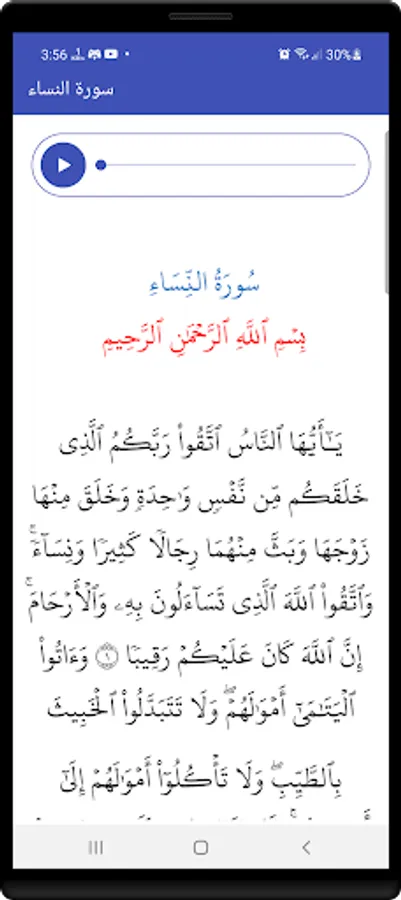 3:56
30%
سورة النساء
سُورَةُ النِّسَاءِ
بِسۡمِ ٱللَّهِ ٱلرَّحۡمَٰنِ ٱلرَّحِيمِ
يَـٰٓأَيُّهَا ٱلنَّاسُ ٱتَّقُواْ رَبَّكُمُ ٱلَّذِى
خَلَقَكُم مِّن نَّفۡسٖ وَٰحِدَةٖ وَخَلَقَ مِنۡهَا
زَوۡجَهَا وَبَثَّ مِنۡهُمَا رِجَالٗا كَثِيرٗا وَنِسَآءٗۚ
وَٱتَّقُواْ ٱللَّهَ ٱلَّذِى تَسَآءَلُونَ بِهِۦ وَٱلۡأَرۡحَامَۚ
إِنَّ ٱللَّهَ كَانَ عَلَيۡكُمۡ رَقِيبٗا ١ وَءَاتُواْ
ٱلۡيَتَٰمَىٰٓ أَمۡوَٰلَهُمۡۖ وَلَا تَتَبَدَّلُواْ ٱلۡخَبِيثَ
بِٱلطَّيِّبِۖ وَلَا تَأۡكُلُوٓاْ أَمۡوَٰلَهُمۡ إِلَىٰٓ